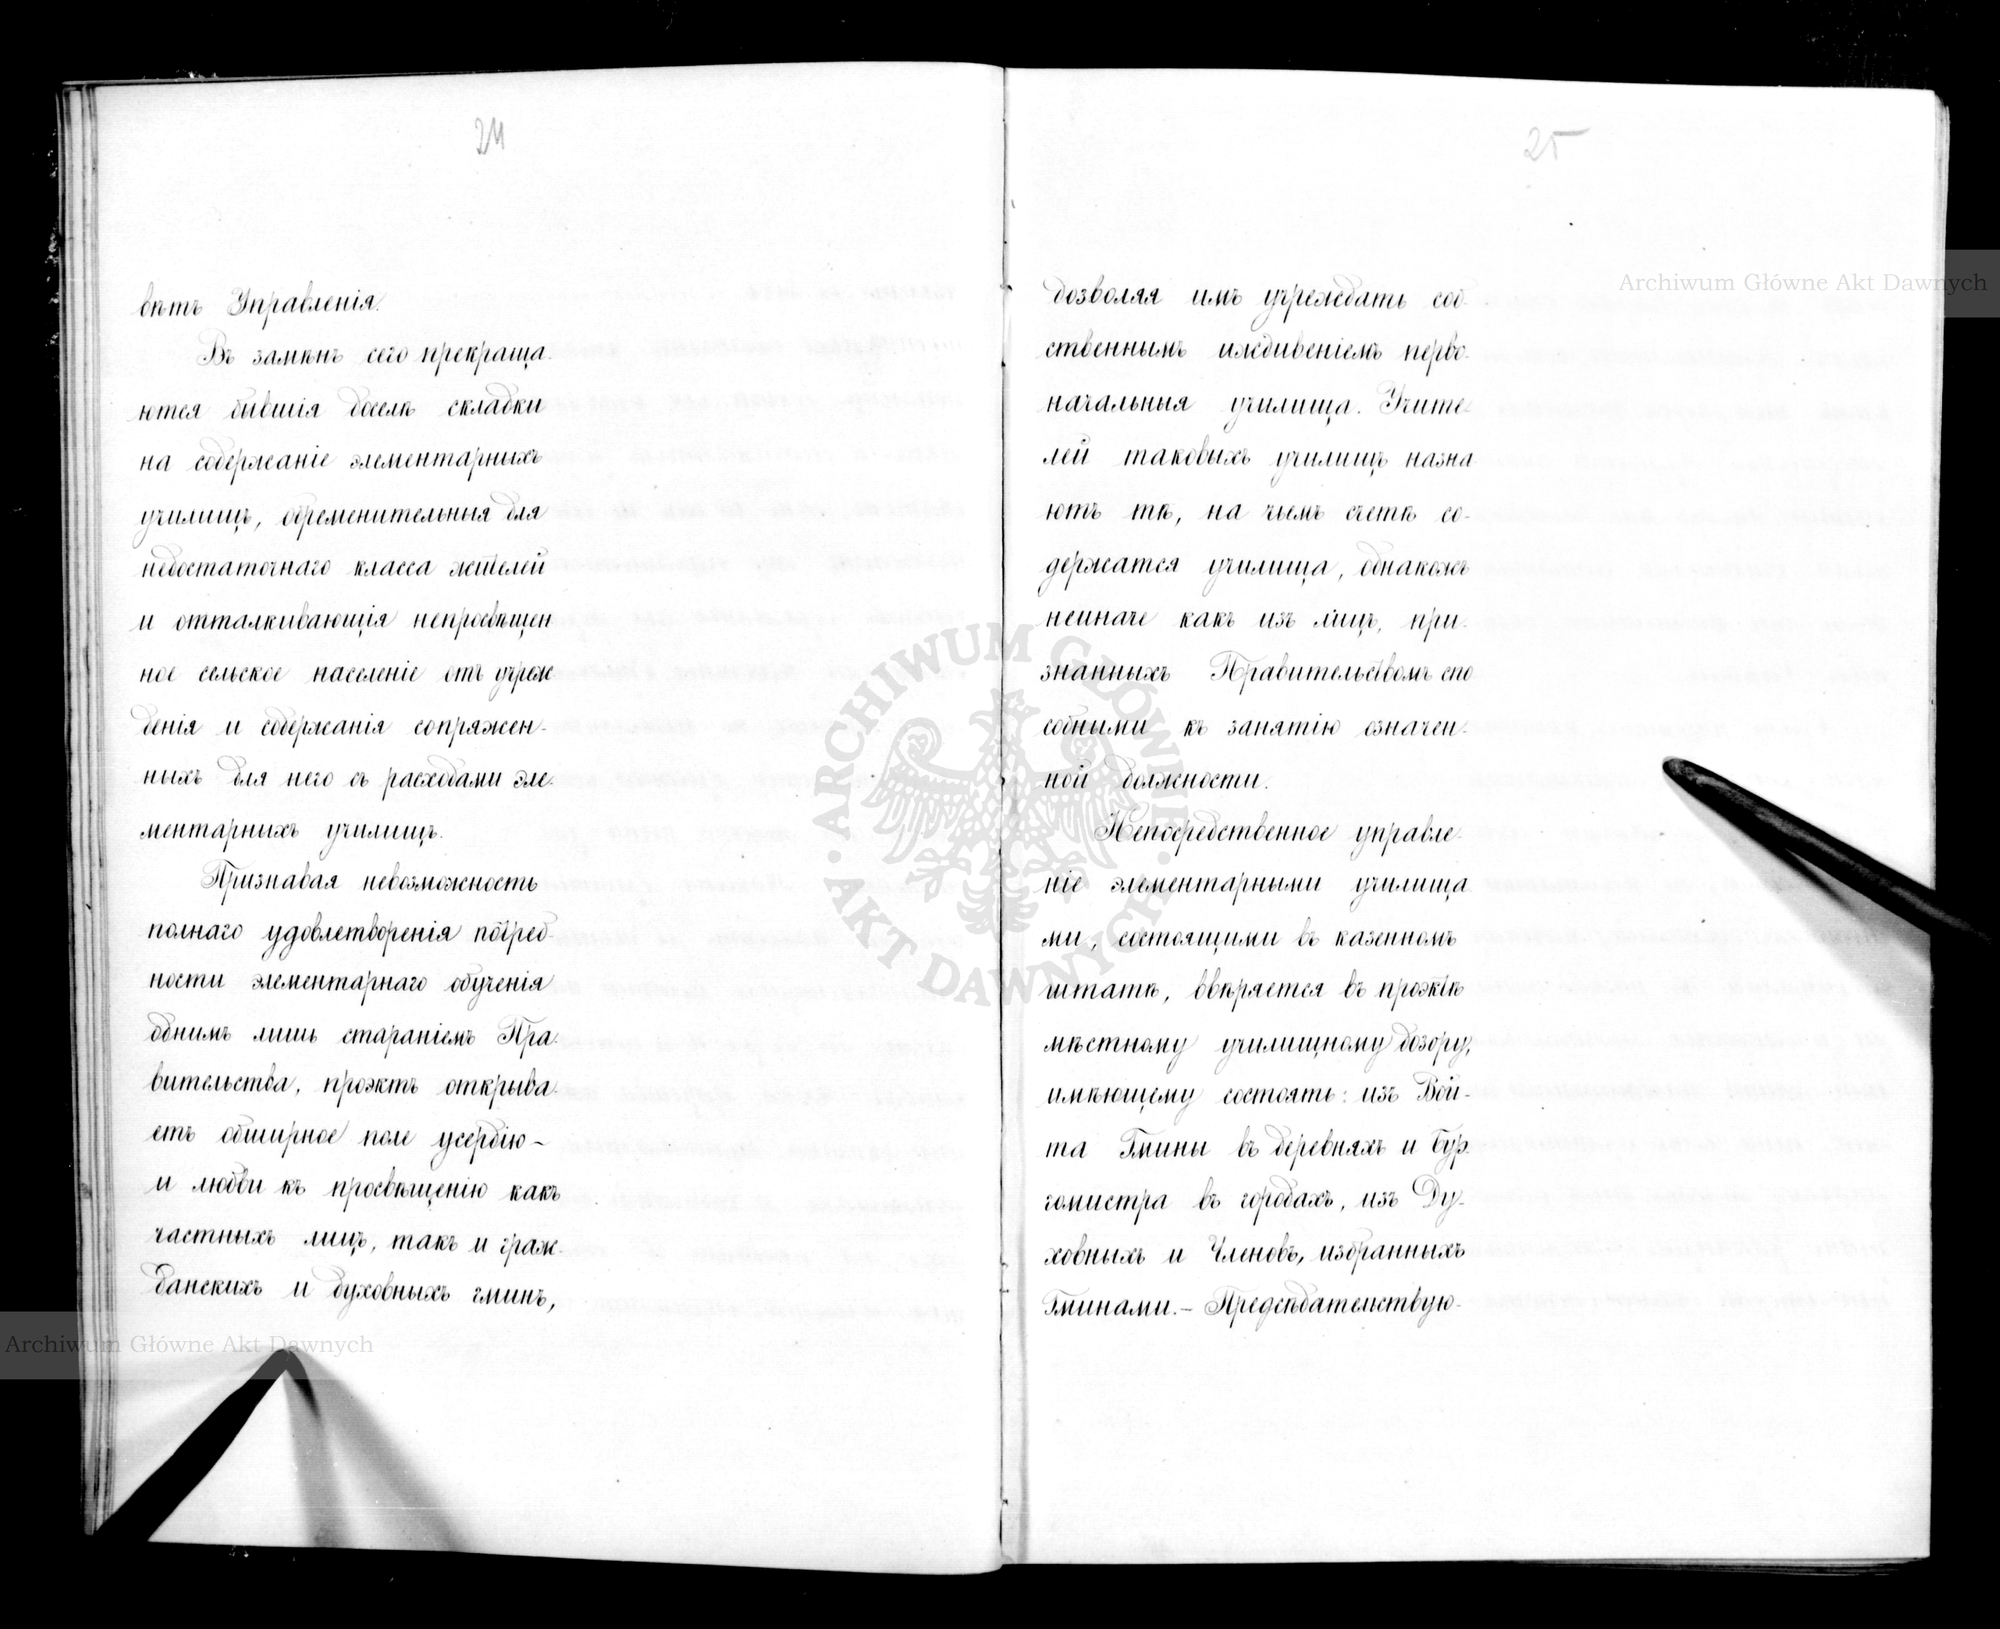 24
вѣтъ Управленія.
Въ замѣнъ сего прекраща-
ются бывшія доселѣ складки
на содержаніе элементарныхъ
училищъ, обременительныя для
недостаточнаго класса жителей
и отталкивающія непросвѣщен
ное сельское населеніе отъ учреж
денія и содержанія сопряжен-
ныхъ для него съ расходами эле-
ментарныхъ училищъ.
Признавая невозможность
полнаго удовлетворенія потреб-
ности элементарнаго обученія
однимъ лишь стараніемъ Пра-
вительства, проэктъ открыва-
етъ обширное поле усердію –
и любви къ просвѣщенію какъ
частныхъ лицъ, такъ и граж-
данскихъ и духовныхъ гминъ,
25
дозволяя имъ учреждать соб-
ственнымъ иждивеніемъ перво-
начальныя училища. Учите-
лей таковыхъ училищъ назна
ютъ тѣ, на чьемъ счетѣ со-
держатся училища, однакожъ
неиначе какъ изъ лицъ, при-
знанныхъ Правительствомъ спо
собными къ занятію означен-
ной должности.
Непосредственное управле-
ніе элементарными училища
ми, состоящими въ казенномъ
штатѣ, ввѣряется въ проэктѣ
мѣстному училищному дозору,
имѣющему состоять: изъ Вой-
та Гмины въ деревняхъ и бур-
гомистра въ городахъ, изъ Ду-
ховныхъ и Членовъ, избранныхъ
Гминами. – Предсѣдательствую-
Archiwum Główne Akt Dawnych
Archiwum Główne Akt Dawnych
ARCHIWUM GŁÓWNE AKT DAWNYCH